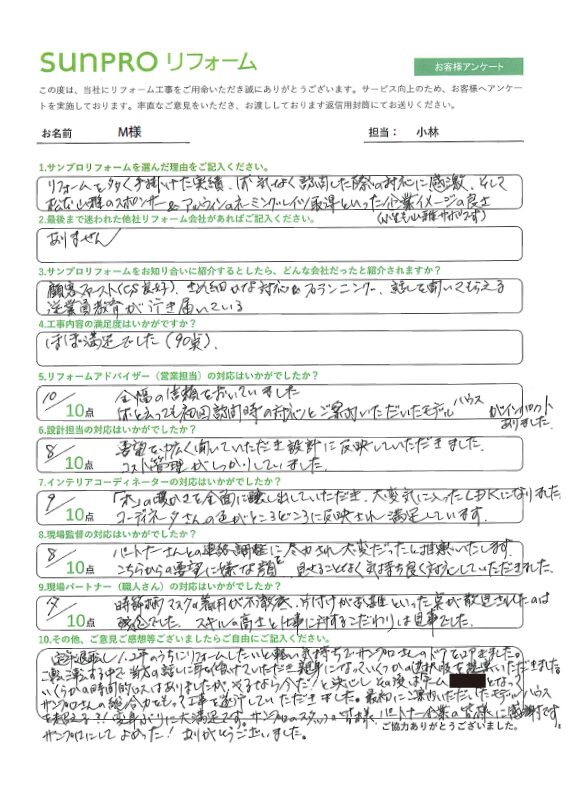 sunPRO リフォーム
お客様アンケート
この度は、当社にリフォーム工事をご用命いただき誠にありがとうございます。サービス向上のため、お客様へアンケー
トを実施しております。率直なご意見をいただき、お渡ししております返信用封筒にてお送りください。
お名前 M様 担当： 小林
1.サンプロリフォームを選んだ理由をご記入ください。
リフォームを多く手掛けた実績、何気なく訪問した際の対応に感激、そして
松本山雅のスポンサー& アルウィンのネーミングライツ取得といった企業イメージの良さ
(私も山雅サポです)
2.最後まで迷われた他社リフォーム会社があればご記入ください。
ありません
3.サンプロリフォームをお知り合いに紹介するとしたら、どんな会社だったと紹介されますか？
顧客ファースト(CS良好)、きめ細かな対応&プランニング、話しを聞いてもらえる
従業員教育が行き届いている
4.工事内容の満足度はいかがですか？
ほぼ満足でした(90点).
5.リフォームアドバイザー（営業担当）の対応はいかがでしたか？
10/10点 全幅の信頼をおいていました
何と言っても初回訪問時の対応とご案内いただいたモデルハウスがインパクト
ありました.
6.設計担当の対応はいかがでしたか？
8/10点 要望を幅広く聞いていただき設計に反映していただきました.
コスト管理がしっかりしていました.
7.インテリアコーディネーターの対応はいかがでしたか？
9/10点 「木」の暖かさを全面に醸し出していただき、大変気に入ったLDKになりました.
コーディネータさんの色がところどころに反映され満足しています.
8.現場監督の対応はいかがでしたか？
8/10点 パートナーさんとの連絡調整に尽力され大変だったと推察いたします.
こちらからの要望に嫌な顔を見せることなく気持ち良く対応していただきました.
9.現場パートナー（職人さん）の対応はいかがでしたか？
/10点 時節柄マスクの着用が不徹底、片付けがお粗末といった点が散見されたのは
残念でした. スキルの高さと仕事に対するこだわりは見事でした.
10.その他、ご意見ご感想等ございましたらご自由にご記入ください。
定年退職し1、2年のうちにリフォームしたいと軽い気持ちでサンプロさんのドアを叩きました。
二転三転する中で当方の話しに耳を傾けていただき親身になっていくつかの選択肢を提案いただきました。
いくらかの時間的ロスはありましたが、やるなら今だ!と決心し その後はチーム となって
サンプロさんの総合力をもって工事を進行していただきました. 最初にご案内いただいたモデルハウス
を超える?! 変身ぶりに大満足です. サンプロのスタッフの皆様、パートナー企業の皆様に感謝です.
サンプロにしてよかった! ありがとうございました.
ご協力ありがとうございました。